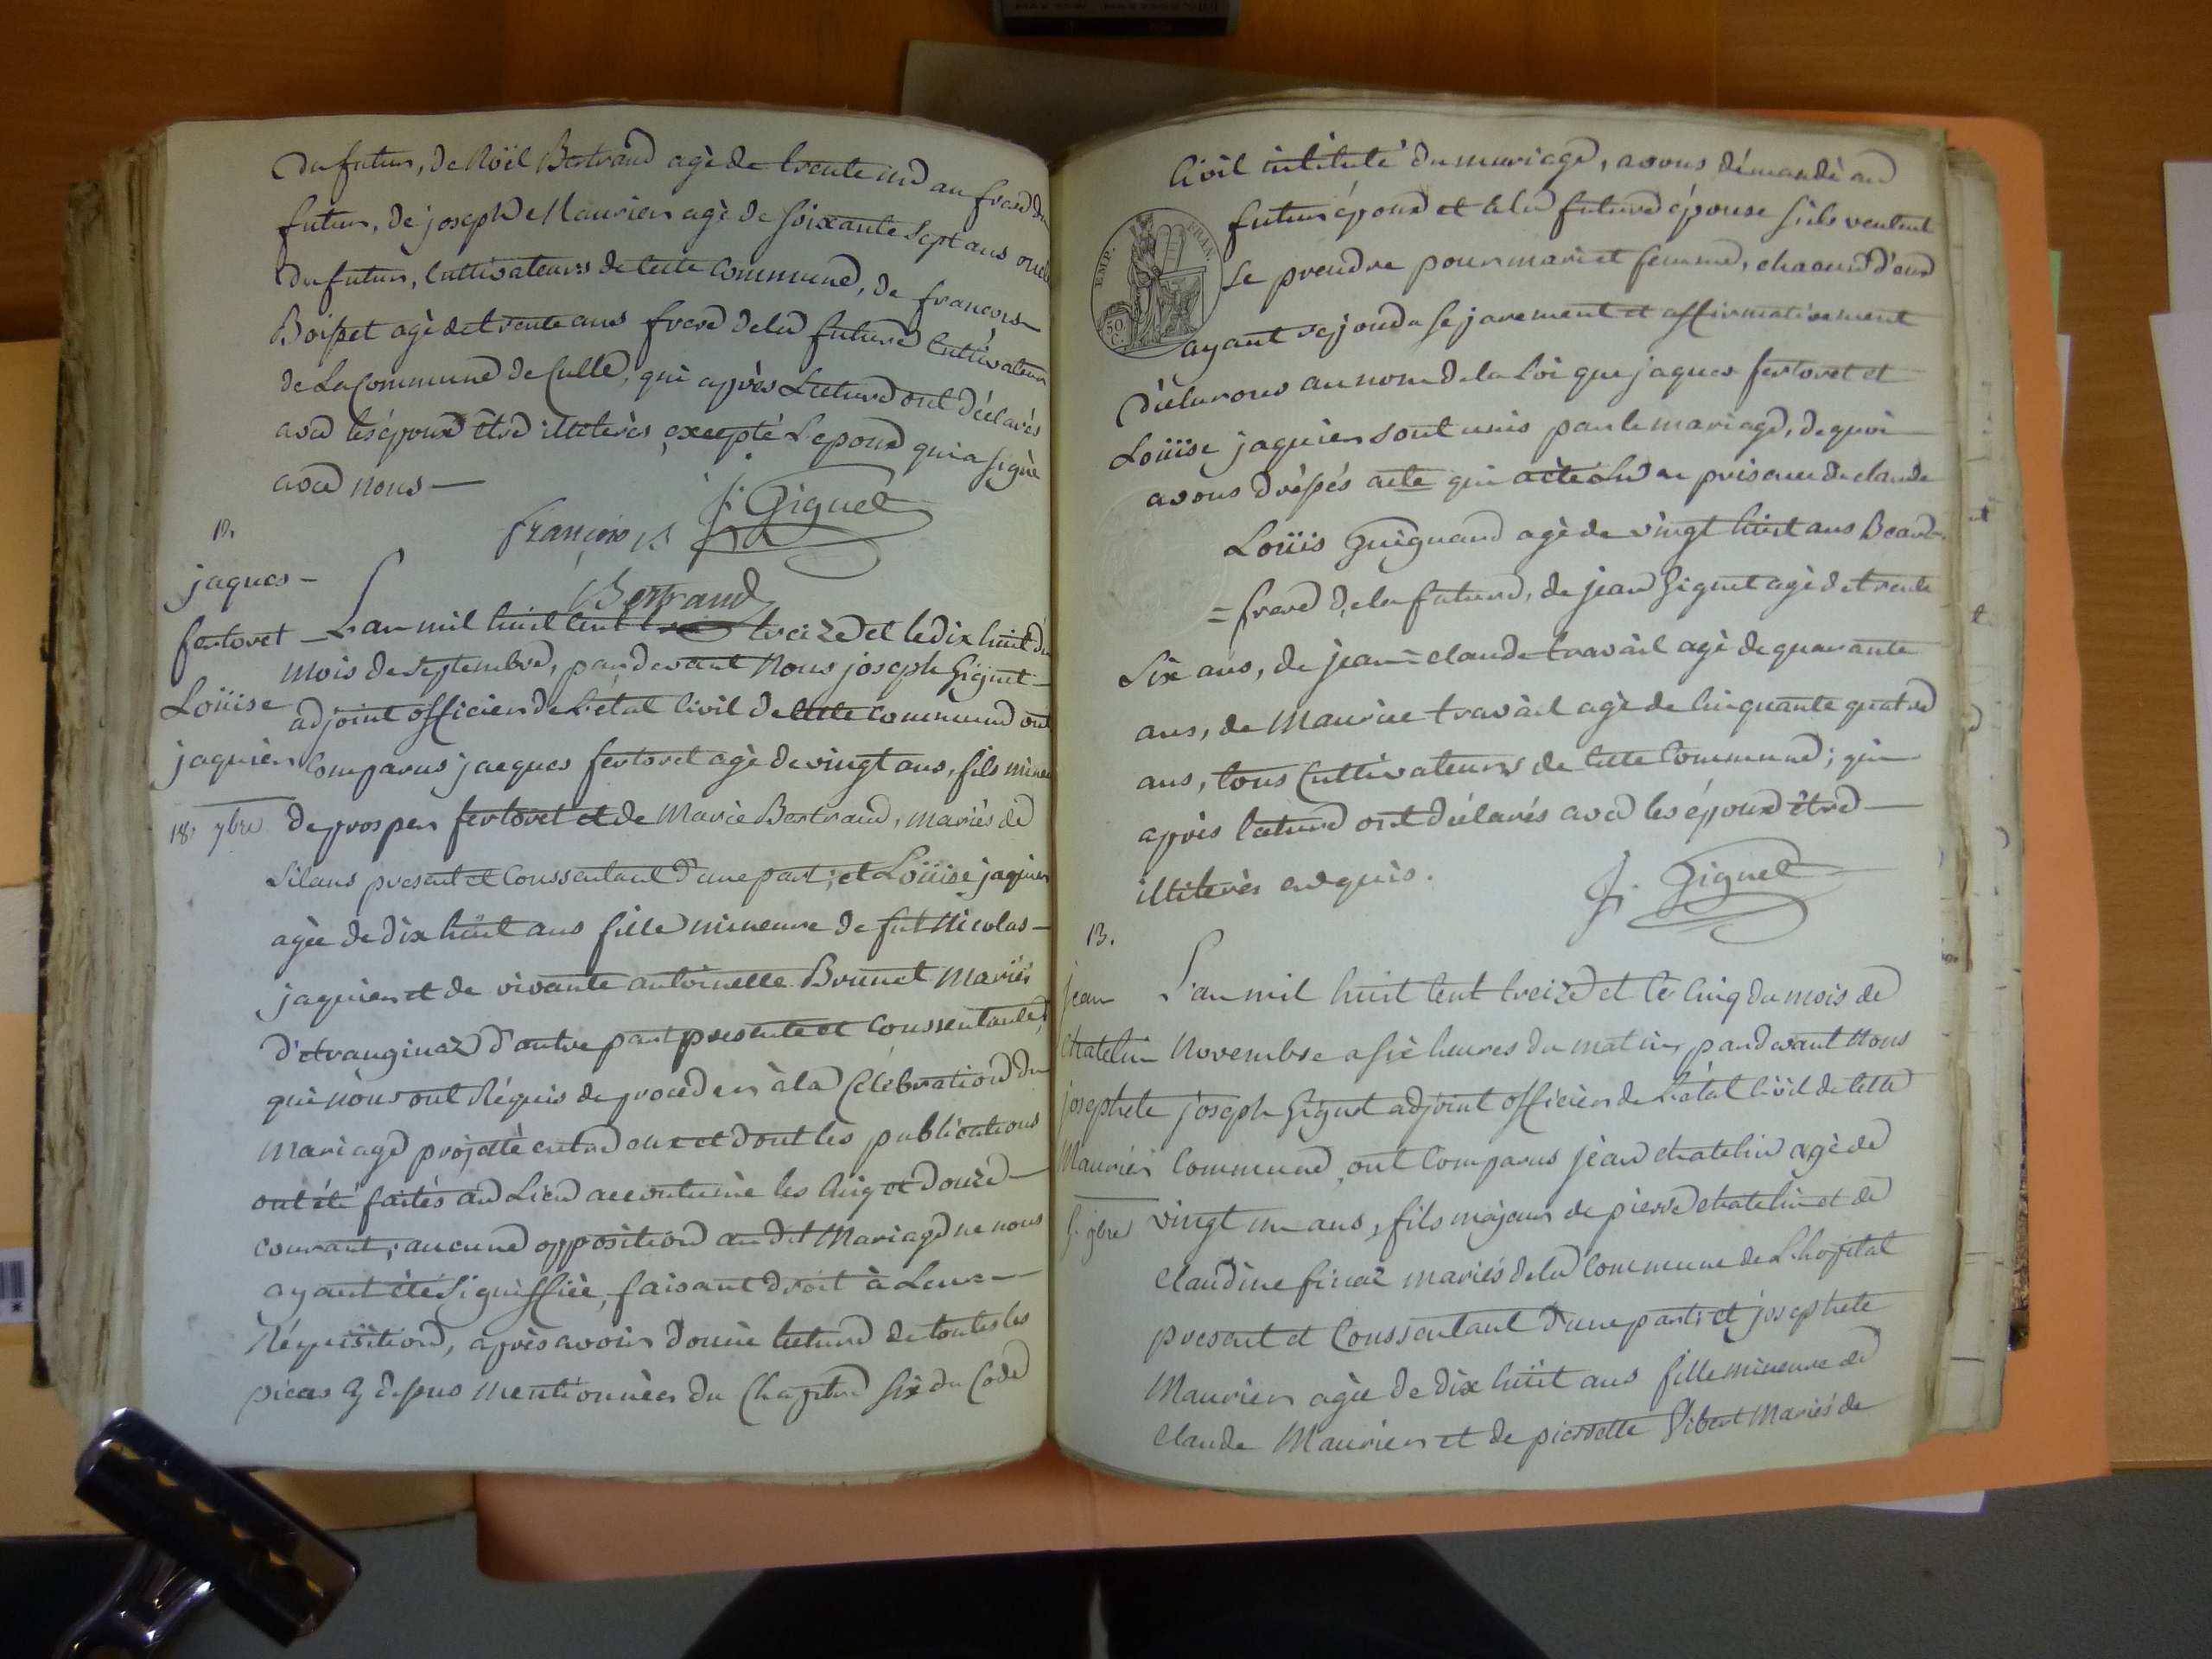 du futur, de Noël Bertrand agè de trente un an frere du
futur, de joseph Maurier agè de soixante sept ans oncle
du futur, Cultivateurs de cette Commune, de francois
Boisset agè de trente ans frere de la future Cultivateur
de La Commune de Culle, qui après Lecture ont déclarès
avec les époux être illiterès excepté L'epoux qui a signe
avec nous —
françois B J. Giguet
Bertrand
12.
jaques —
fertoret
Loüise
jaquier
18. 7bre
L'an mil huit cent treize et le dix huit du
mois de septembre, pardevant Nous joseph Giguet
adjoint officier de L'état Civil de cette Commune ont
Comparus jacques fertoret agè de vingt ans, fils mineur
de prosper fertoret et de Marie Bertrand, mariès de
Silans present et Conssentant d'une part; et Loüise jaquier
agèe de dix huit ans fille mineure de fut Nicolas —
jaquier et de vivante antoinette Brunet Mariès
d'etranginaz d'autre part presente et Conssentante,
qui nous ont Réquis de proceder à la Célébration du
Mariage projetté entre eux et dont les publications
ont été faites au Lieu accoutumèe les Cinq et douze —
courant; aucune opposition au dit Mariage ne nous
ayant été Signiffièe, faisant droit à Leur —
Réquisition, après avoir donnè lecture de toutes les
pieces Cy dessus mentionnèes du Chapitre six du Code
Civil intitulé du mariage, avons démandè au
EMP. FRAN.
50 C.
futur époux et à la future épouse s'ils veulent
se prendre pour mari et femme, chacun d'eux
ayant repondu séparement et affirmativement
déclarons au nom de la Loi que jaques fertoret et
Loüise jaquier sont unis par le mariage, de quoi
avons dréssés acte qui acte Lu en presence de claude
Loüis Guèguand agè de vingt huit ans Beau-
= frere de la future, de jean Giguet agè de trente
six ans, de jean = claude travail agè de quarante
ans, de Maurice travail agè de Cinquante quatre
ans, tous Cultivateurs de cette Commune; qui
après lecture ont déclarés avec les époux être —
illiterès enquis.
J. Giguet
13.
jean
chatelin
josephete
Maurier
5. 9bre
L'an mil huit cent treize et le Cinq du mois de
Novembre a six heures du matin, pardevant Nous
joseph Giguet adjoint officier de L'état Civil de cette
Commune, ont Comparus jean chatelin agè de
vingt un ans, fils majeur de pierre chatelin et de
Claudine finaz mariés de la Commune de L'hopital
present et Conssentant d'une part; et josephete
Maurier agèe de dix huit ans fille mineure de
Claude Maurier et de pierrette Vibert Mariés de